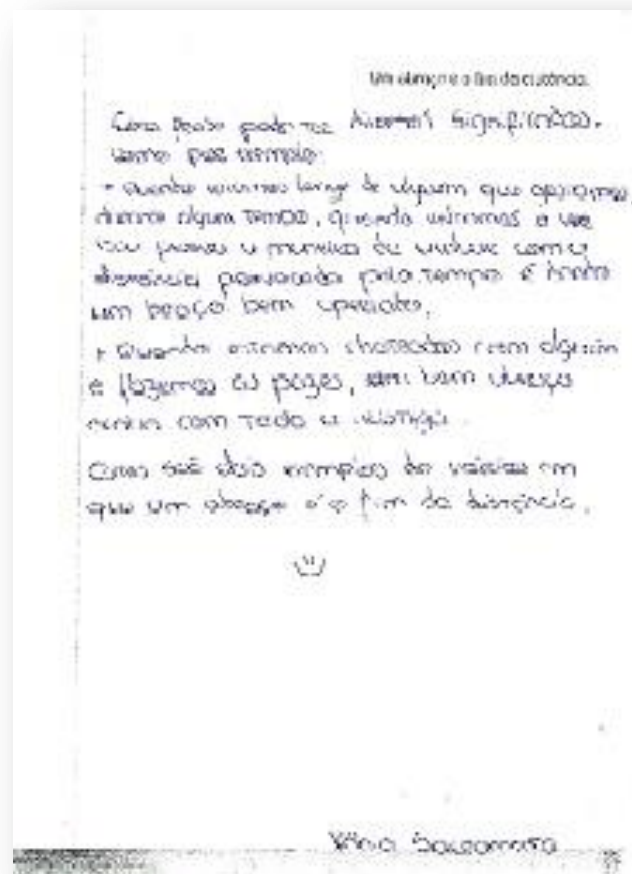 Um abraço é o fim da distância.
Esta frase pode ter diversos significados,
como por exemplo:
• Quando estamos longe de alguém que gostamos,
durante algum tempo, quando estamos a
a maneira de acabar com a
distância provocada pelo tempo é
um abraço bem apertado.
• Quando estamos chateados com alguém
e fazemos as pazes, um bom abraço
acaba com toda a distância.
Estes são dois exemplos de vários em
que um abraço é o fim da distância.